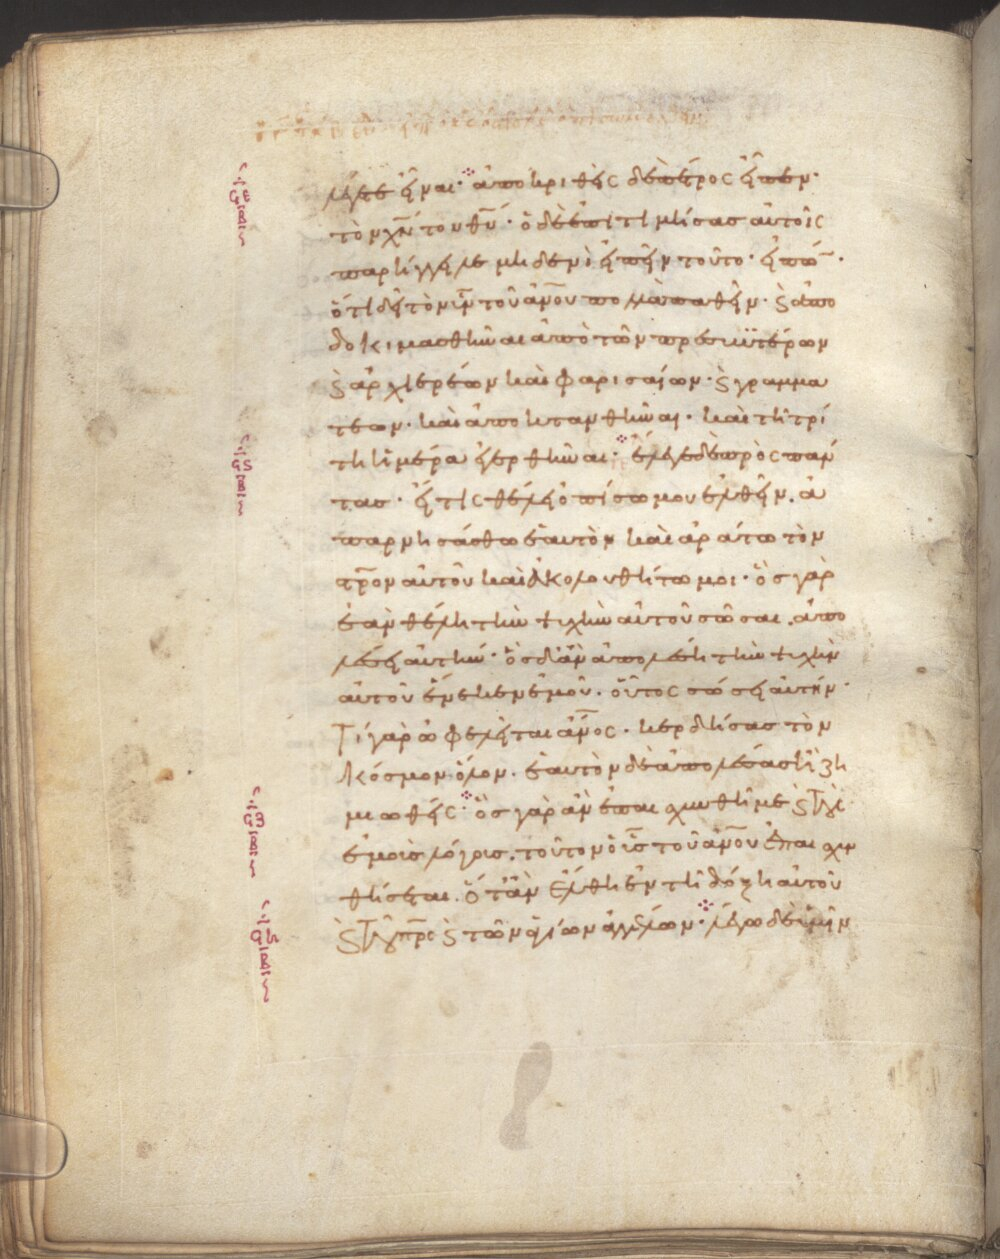 λέγετε εἶναι· ἀποκριθεὶς δὲ πέτρος εἶπεν·
τὸν χ̅ν̅ τοῦ θ̅υ̅· ὁ δὲ ἐπιτιμήσας αὐτοῖς
παρήγγειλε μηδενὶ εἰπεῖν τοῦτο· εἰπὼν·
ὅτι δεῖ τὸν υ̅ν̅ τοῦ α̅ν̅ο̅υ̅ πολλὰ παθεῖν· ϗ ἀπο
δοκιμασθῆναι ἀπὸ τῶν πρεσβυτέρων
ϗ ἀρχιερέων καὶ φαρισαίων· ϗ γραμμα
τέων· καὶ ἀποκτανθῆναι· καὶ τῆ τρί
τη ἡμέρα ἐγερθῆναι· ἔλεγε δὲ πρὸς πάν
τας· εἴ τις θέλει ὀπίσω μου ἐλθεῖν, ἀ
παρνησάσθω ἑαυτὸν καὶ ἀράτω τὸν
σ̅τ̅ρ̅ο̅ν̅ αὐτοῦ καὶ ἀκολουθήτω μοι· ὃς γὰρ
ἐὰν θέλη τὴν ψυχὴν αὐτοῦ σῶσαι, ἀπο
λέσει αὐτήν· ὃς δ' ἂν ἀπολέση τὴν ψυχὴν
αὐτοῦ ἕνεκεν ἐμοῦ· οὗτος σώσει αὐτήν·
Τί γὰρ ὠφελεῖται ἄ̅ν̅ο̅ς̅· κερδήσας τὸν
κόσμον ὅλον· ἑαυτὸν δὲ ἀπολέσας ἢ ζη
μιωθείς· ὃς γὰρ ἂν ἐπαισχυνθῆ με ϗ τοὺς
ἐμοὺς λόγους, τοῦτον ὁ υ̅ς̅ τοῦ α̅ν̅ο̅υ̅ ἐπαισχυν
θήσεται. ὅταν ἔλθη ἐν τῆ δόξη αὐτοῦ
ϗ τοῦ π̅ρ̅ς̅ ϗ τῶν ἁγίων ἀγγέλων· λέγω δὲ ὑμῖν